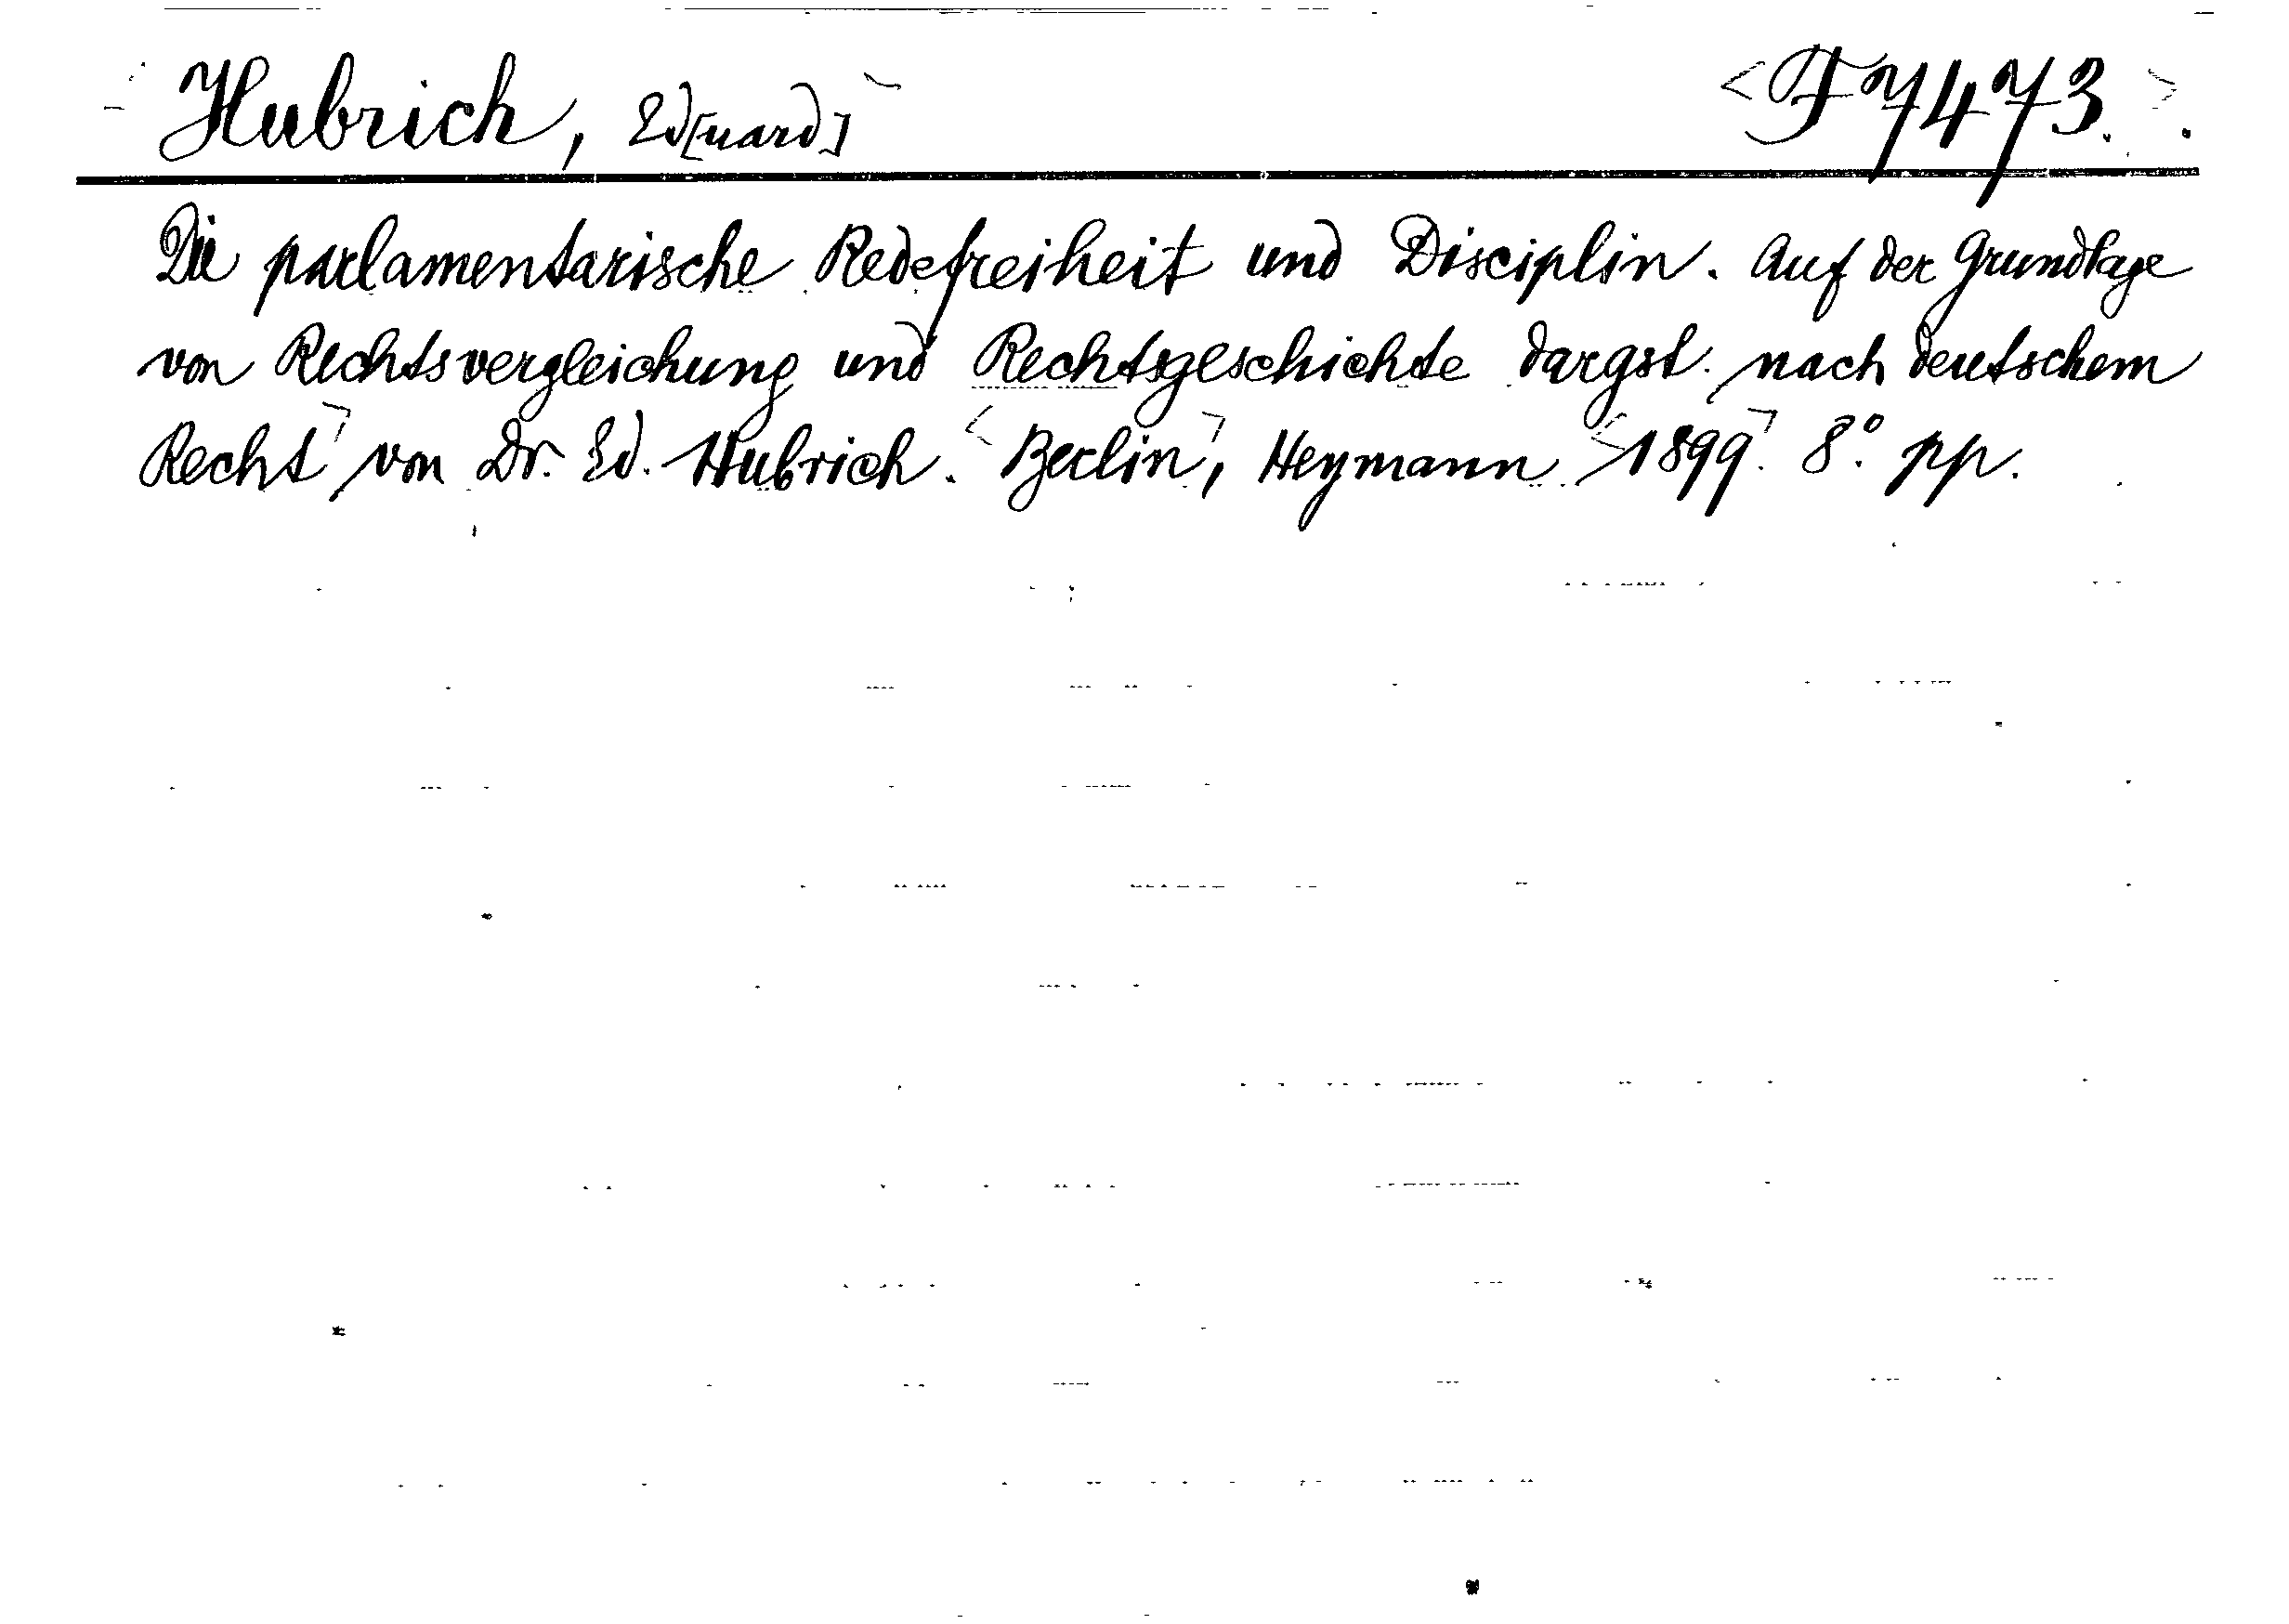 Hubrich, Ed[uard] F 7473.
Die parlamentarische Redefreiheit und Disciplin. Auf der Grundlage
von Rechtsvergleichung und Rechtsgeschichte dargst. nach deutschem
Recht von Dr. Ed. Hubrich. Berlin, Heymann 1899. 8° pp.